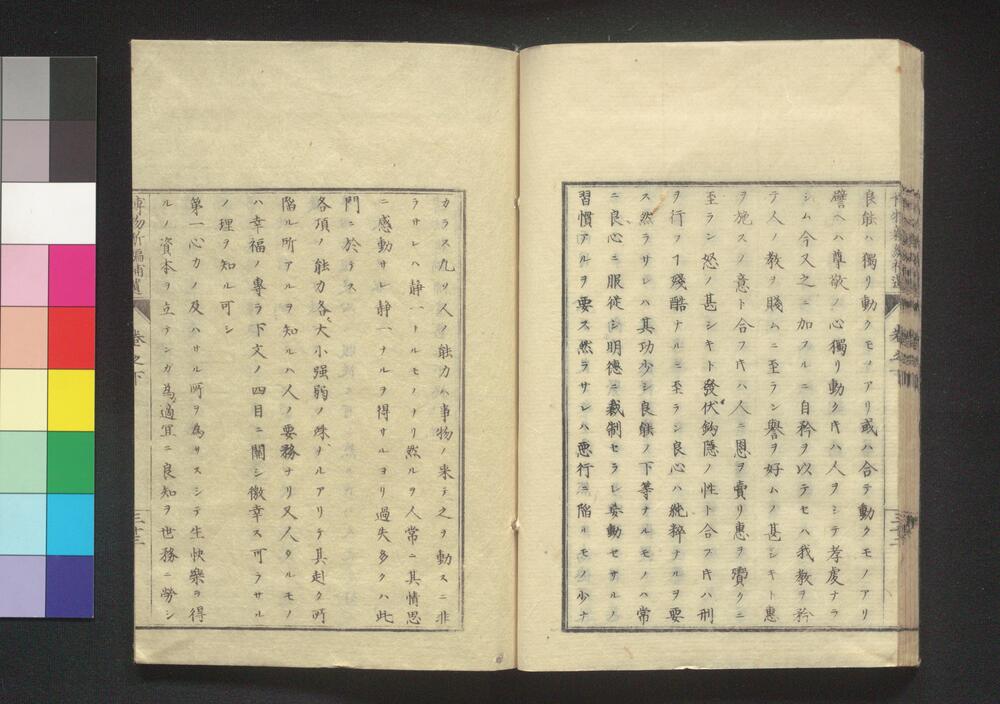 良能ハ獨リ動クモノアリ或ハ合テ動クモノアリ
譬ヘハ尊敬ノ心獨リ動ク𪜈ハ人ヲシテ孝虔ナラ
シム今又之ニ加フルニ自矜ヲ以テセハ我教ヲ矜
テ人ノ教ヲ賤ムニ至ラン譽ヲ好ムノ甚シキト惠
ヲ施スノ意ト合フ𪜈ハ人ニ恩ヲ賣リ惠ヲ鬻クニ
至ラン怒ノ甚シキト發伏鈎隱ノ性ト合フ𪜈ハ刑
ヲ行フヿ殘酷ナルニ至ラン良心ハ純粹ナルヲ要
ス然ラサレハ其功少シ良能ノ下等ナルモノハ常
ニ良心ニ服從シ明德ニ裁制セラレ妄動セサルノ
習慣アルヲ要ス然ラサレハ悪行ニ陷ルモノ少ナ
カラス凡ソ人ノ能力ハ事物ノ来テ之ヲ動スニ非
ラサレハ靜一ナルモノナリ然ルヲ人常ニ其情思
ニ感動サレ静一ナルヲ得サルヨリ過失多クハ此
門ニ於テス
各頂ノ能力各大小强弱ノ殊ナルアリテ其赴ク所
陷ル所アルヲ知ルハ人ノ要務ナリ又人タルモノ
ハ幸福ノ專ラ下文ノ四目ニ關シ徼幸ス可ラサル
ノ理ヲ知ル可シ
第一心力ノ及ハサル所ヲ為サスシテ生快樂ヲ得
ルノ資本ヲ立テンガ為適宜ニ良知ヲ世務ニ勞シ
卷之下
三十三